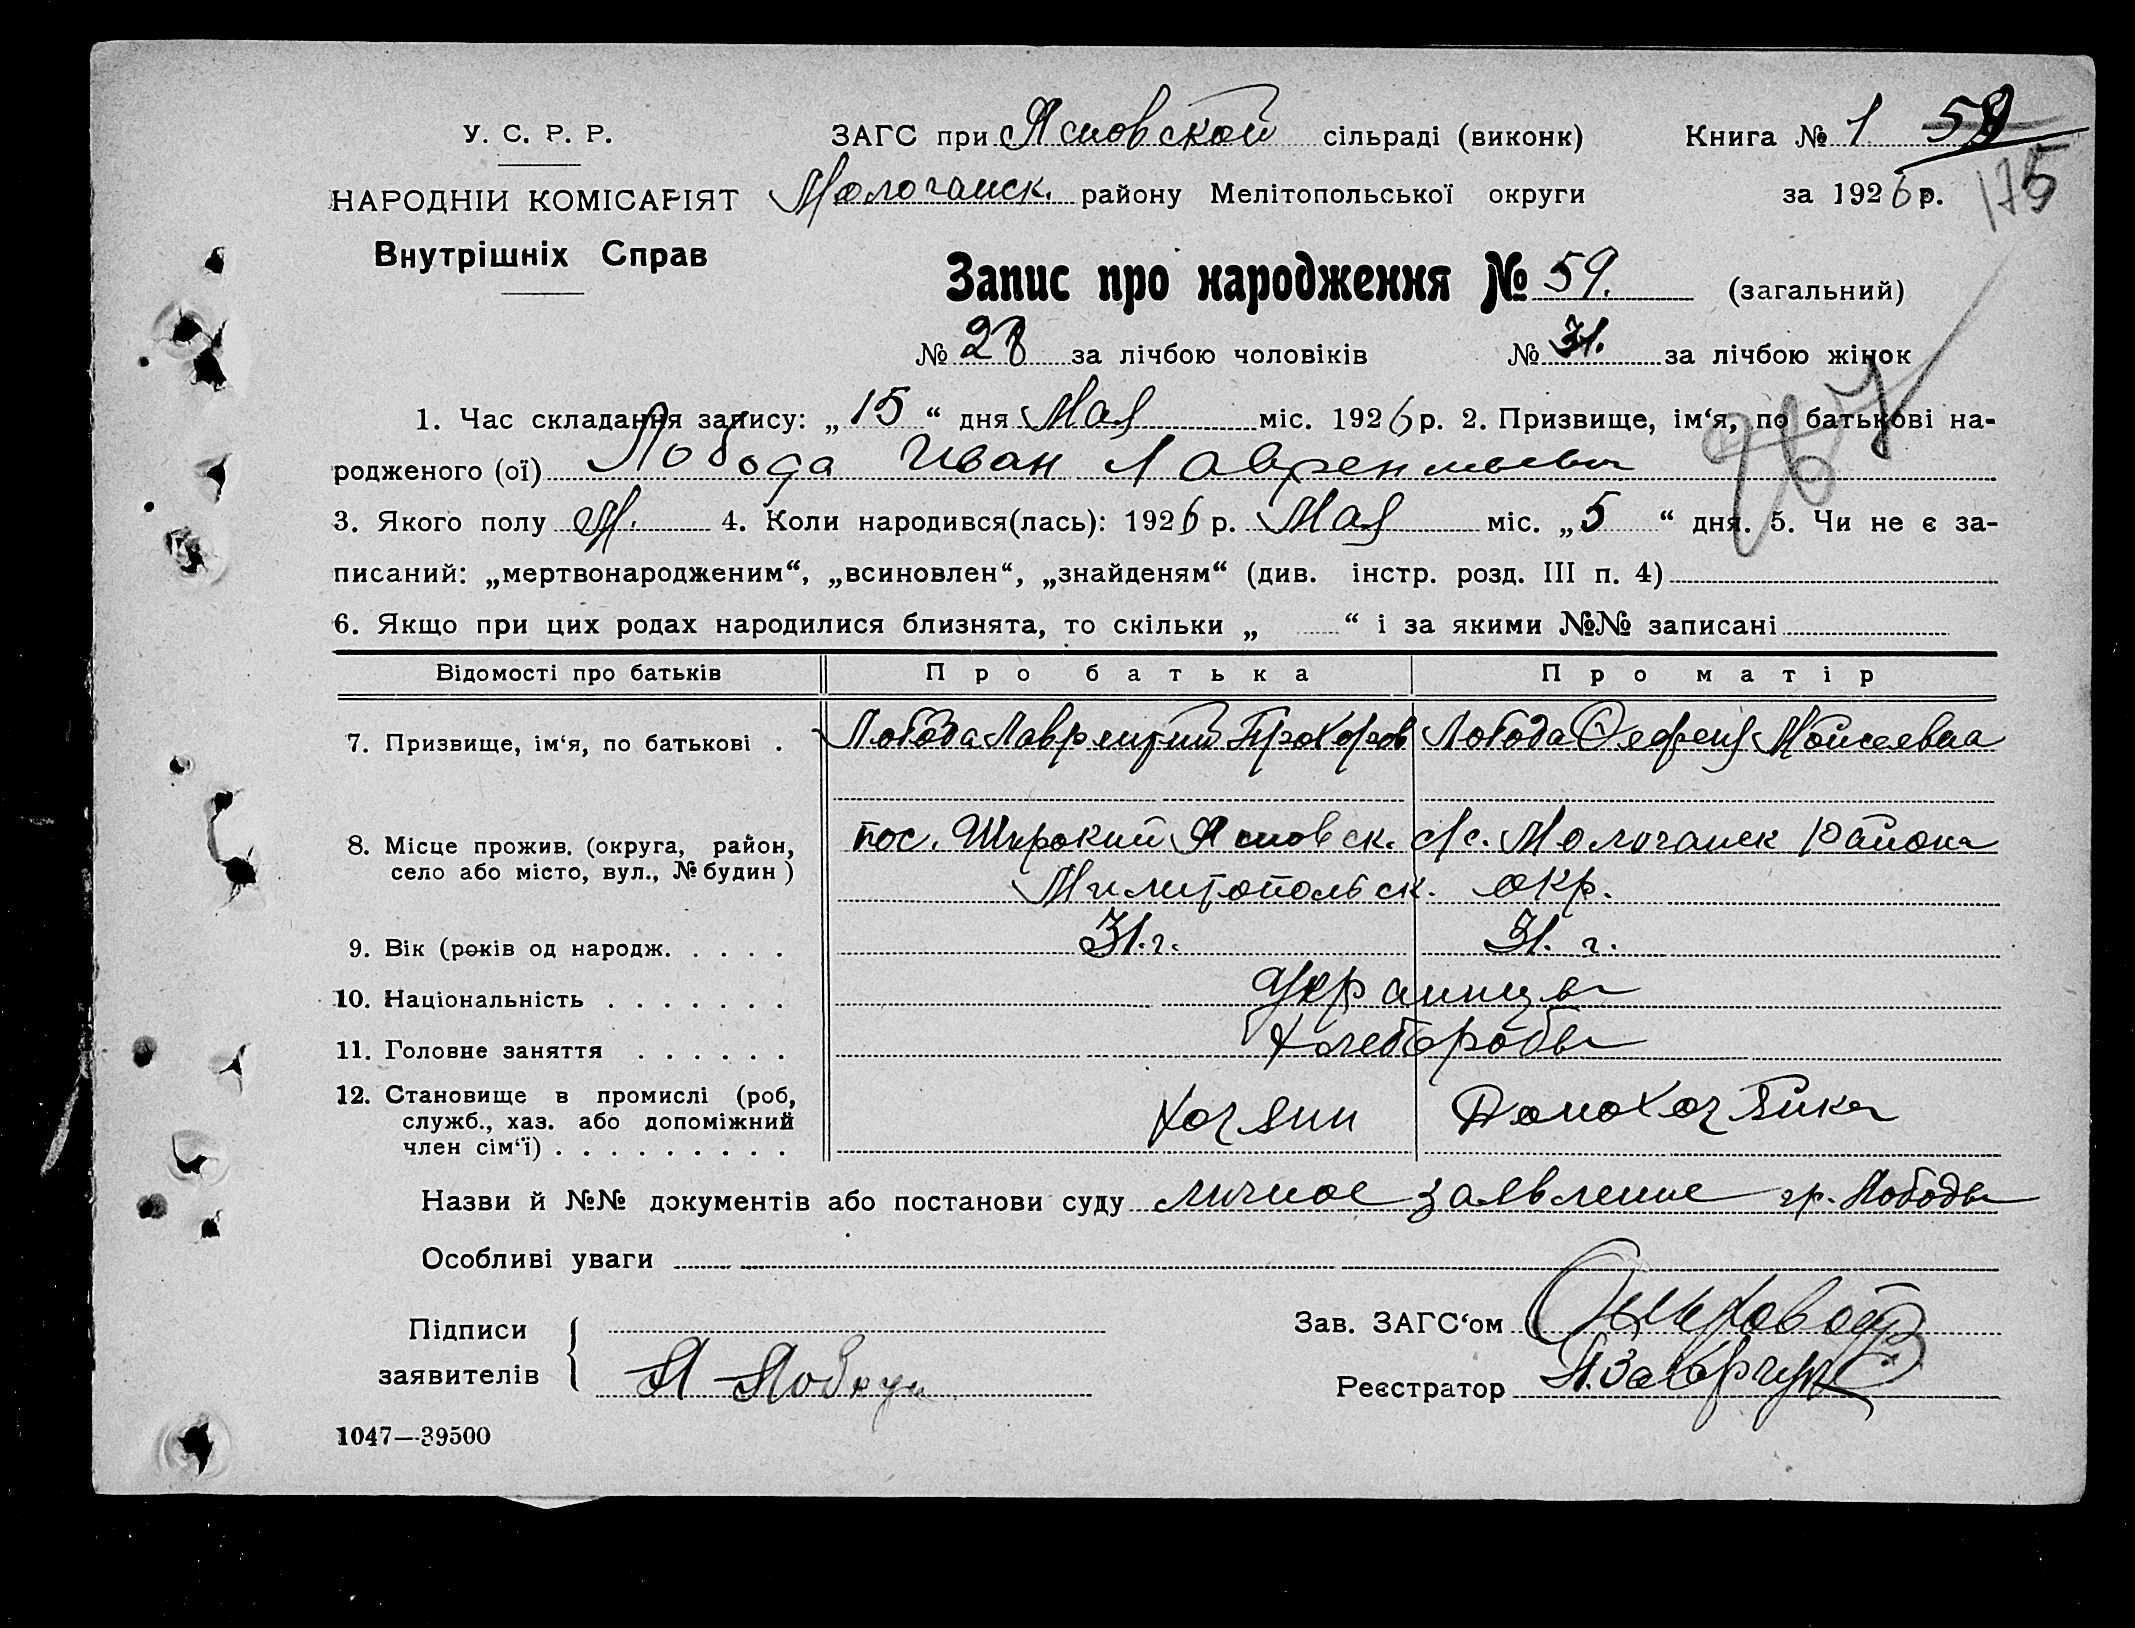 У. С. Р. Р.
ЗАГС при Ясновской сільраді (виконк)
Книга № 1 59
175
НАРОДНІИ КОМІСАРІЯТ
Молочанск. району Мелітопольської округи
за 1926 р.
Внутрішніх Справ
Запис про народження № 59. (загальний)
№ 28 за лічбою чоловіків № 31. за лічбою жінок
1. Час складання запису: „ 15 “ дня Мая міс. 1926 р. 2. Призвище, ім‘я, по батькові на-
родженого (ої) Лобода Иван Лаврентьевич
3. Якого полу М. 4. Коли народився(лась): 1926 р. Мая міс. „ 5 “ дня. 5. Чи не є за-
писаний: „мертвонародженим“, „всиновлен“, „знайденям“ (див. інстр. розд. III п. 4)
6. Якщо при цих родах народилися близнята, то скільки „ “ і за якими №№ записані
Відомості про батьків
Про батька
Про матір
7. Призвище, ім‘я, по батькові .
Лобода Лаврентий Прохоров
Лобода Моисеевна
8. Місце прожив. (округа, район,
село або місто, вул., № будин )
пос. Широкий Ясновск. с/с. Молочанск района
Милитопольск. окр.
9. Вік (років од народж. . . . .
31. г.
31. г.
10. Національність . . . . . . .
Украинцы
11. Головне заняття . . . . . .
Хлеборобы
12. Становище в промислі (роб,
служб., хаз. або допоміжний
член сім‘ї) . . . . . . . . .
Хозяин
Домохозяйка
Назви й №№ документів або постанови суду личное заявление гр. Лободы
Особливі уваги
Підписи
заявителів
Л Лобода
Зав. ЗАГС‘ом
Реєстратор
1047—39500